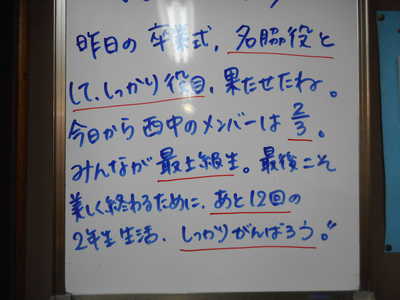 昨日の卒業式、名脇役と
して、しっかり役目、果たせたね。
今日から西中のメンバーは2/3。
みんなが最上級生。最後こそ
美しく終わるために、あと12回の
2年生生活、しっかりがんばろう。